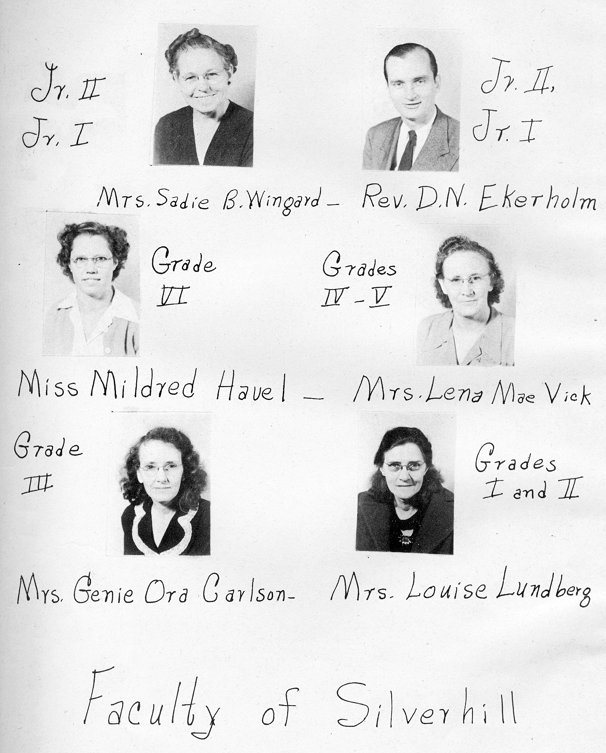 Jr. II
Jr. I
Jr. II,
Jr. I
Mrs. Sadie B. Wingard – Rev. D.N. Ekerholm
Grade
VI
Grades
IV – V
Miss Mildred Havel – Mrs. Lena Mae Vick
Grade
III
Grades
I and II
Mrs. Genie Ora Carlson – Mrs. Louise Lundberg
Faculty of Silverhill